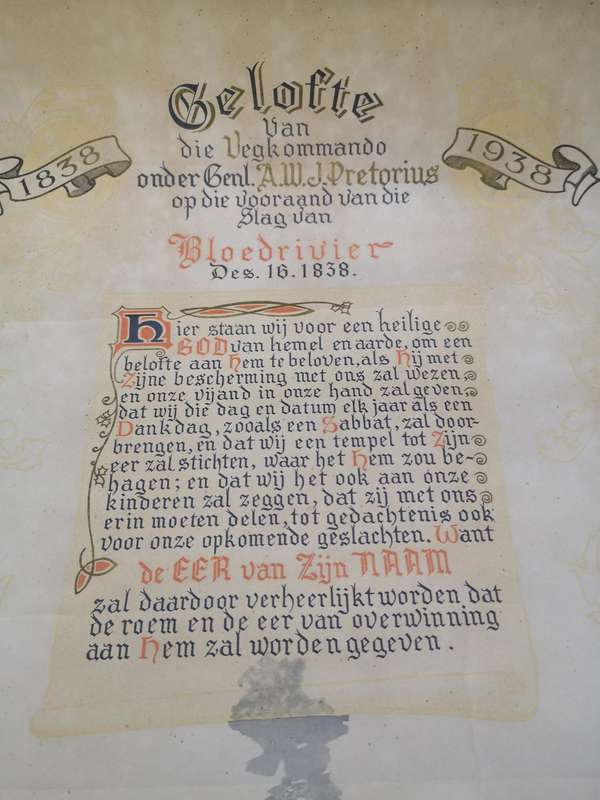 Gelofte
van
die Vegkommando
1838
1938
onder Genl. A.W.J. Pretorius
op die vooraand van die
Slag van
Bloedrivier
Des. 16. 1838.
Hier staan wij voor een heilige
GOD van hemel en aarde, om een
belofte aan Hem te beloven, als Hij met
Zijne bescherming met ons zal wezen,
en onze vijand in onze hand zal geven,
dat wij die dag en datum elk jaar als een
Dankdag, zooals een Sabbat, zal door-
brengen, en dat wij een tempel tot Zijn
eer zal stichten, waar het Hem zou be-
hagen; en dat wij het ook aan onze
kinderen zal zeggen, dat zij met ons
erin moeten delen, tot gedachtenis ook
voor onze opkomende geslachten. Want
de EER van Zijn NAAM
zal daardoor verheerlijkt worden dat
de roem en de eer van overwinning
aan Hem zal worden gegeven.